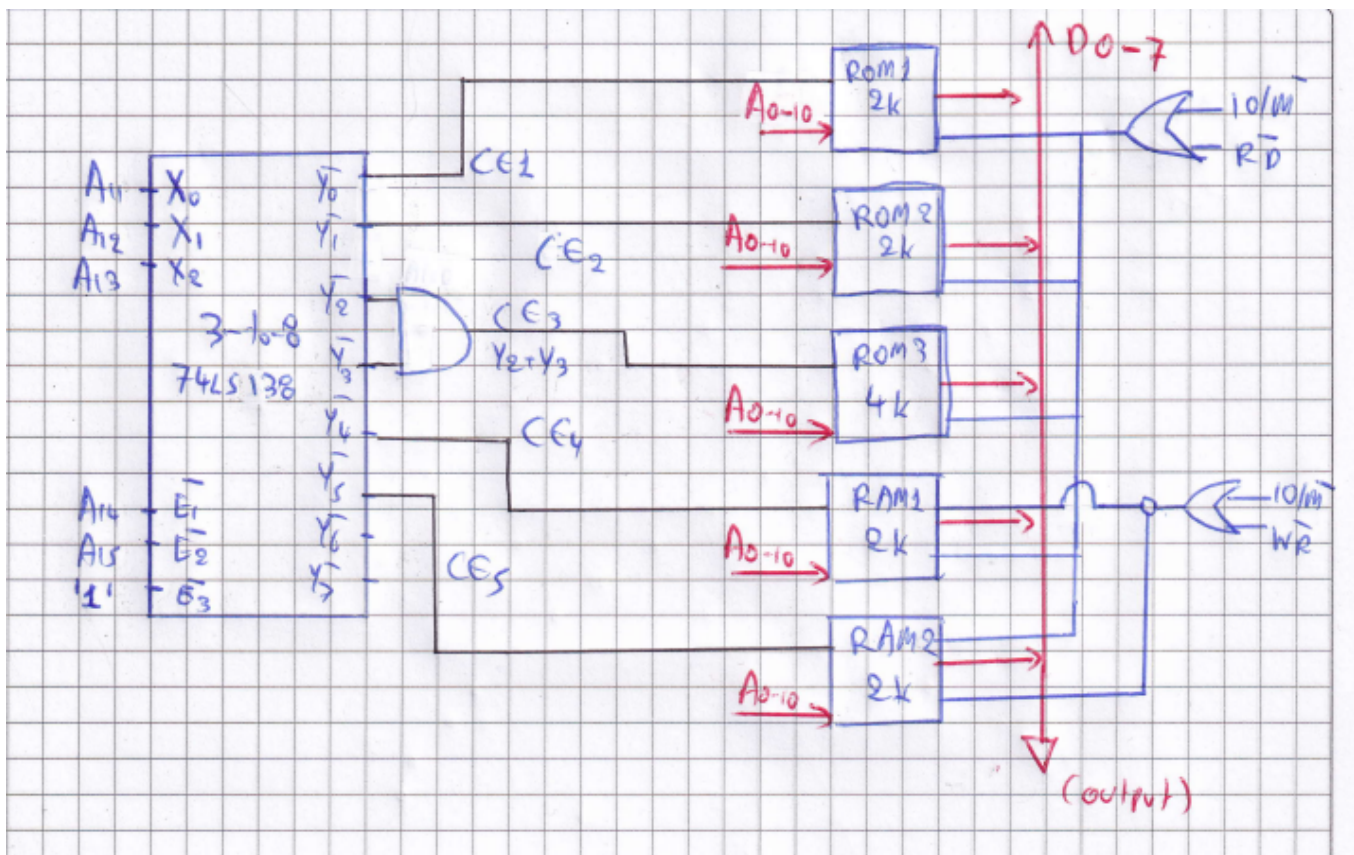 A11 X0 Y̅0̅
A12 X1 Y̅1̅
A13 X2
Y̅2̅
3-to-8
Y̅3̅
74LS138
Y̅4̅
Y̅5̅
A14 E̅1̅
Y̅6̅
A15 E̅2̅
Y̅7̅
'1' E̅3̅
CE1
CE2
CE3
Y2+Y3
CE4
CE5
ROM1
2k
A0-10
ROM2
2k
A0-10
ROM3
4k
A0-10
RAM1
2k
A0-10
RAM2
2k
A0-10
D0-7
IO/M̅
R̅D̅
IO/M̅
W̅R̅
(output)